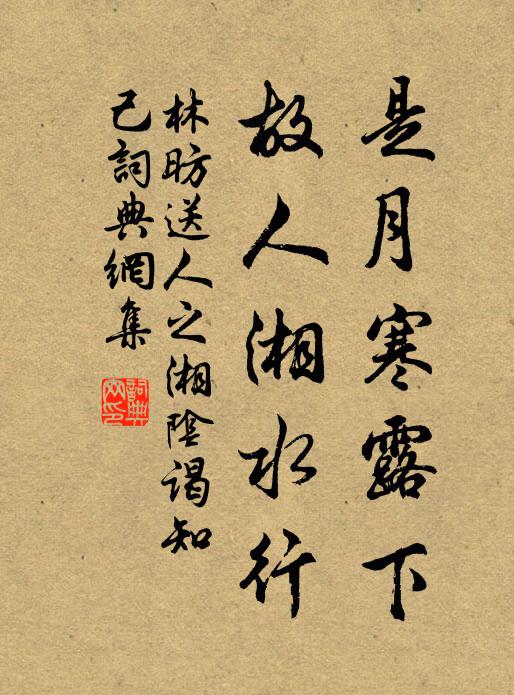 是月寒露下
故人湘水行
林昉送人之湘陰謁知
己詞典網集
詞典網印